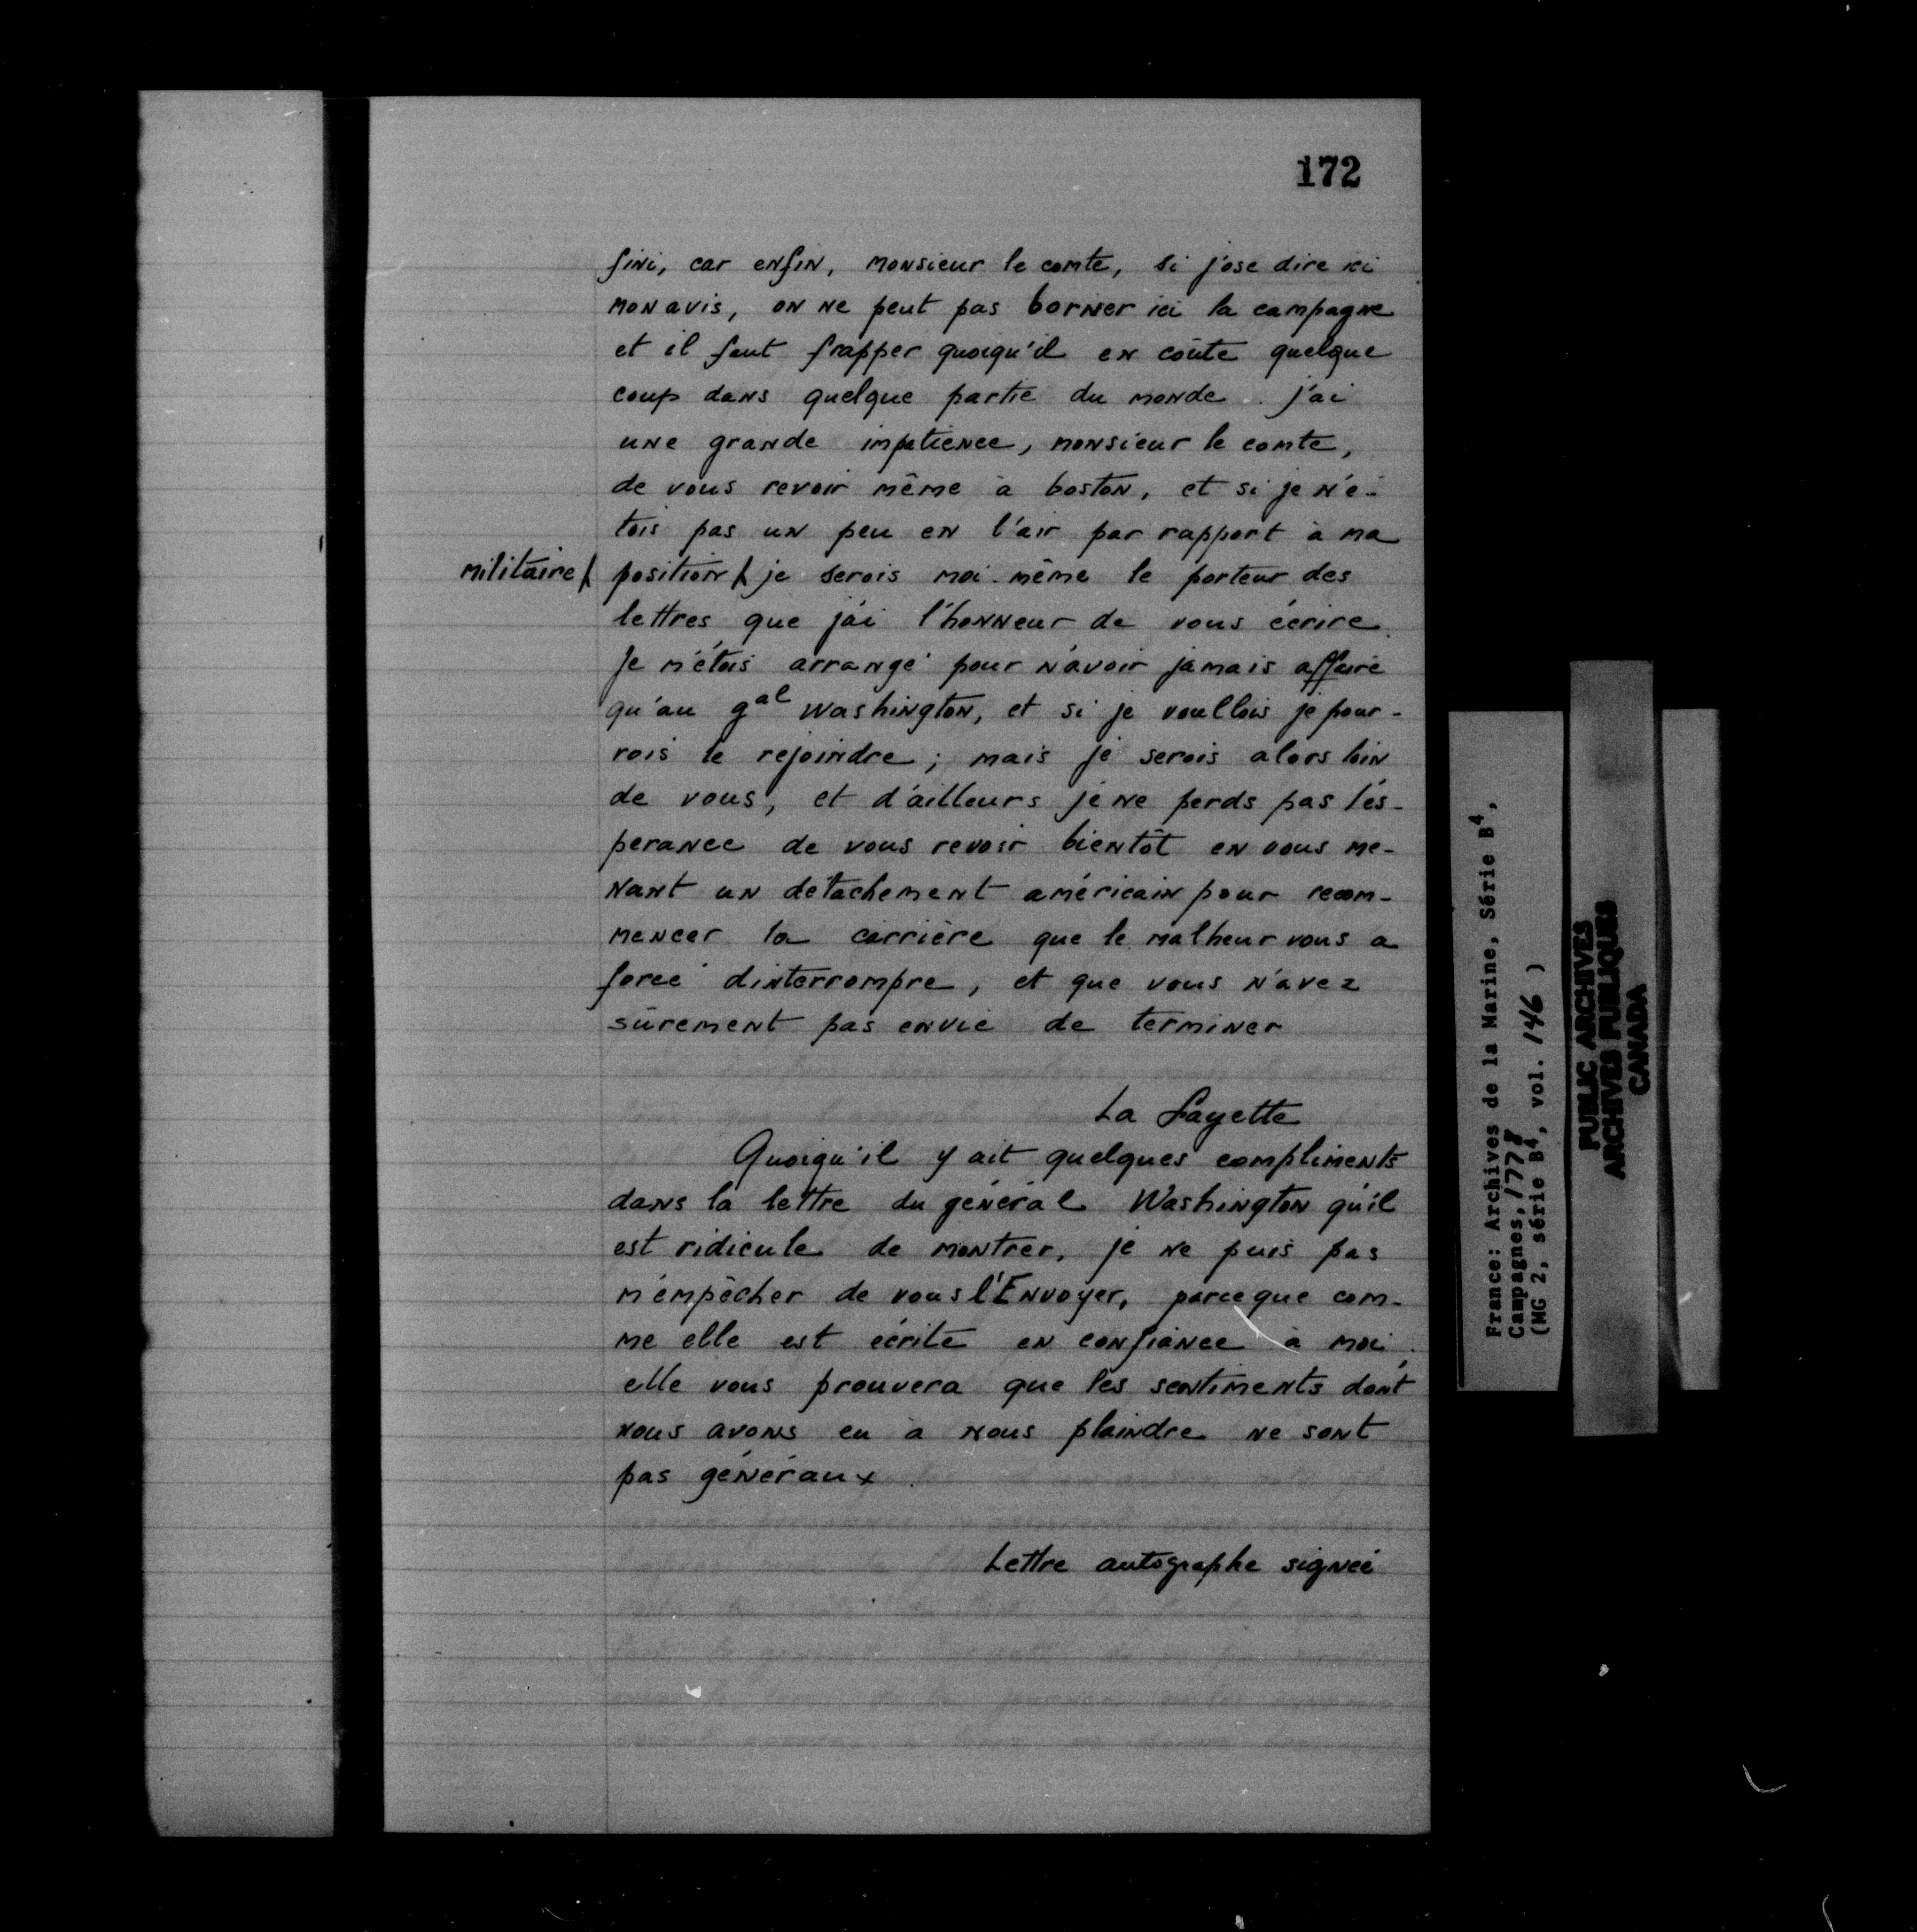 172
fini, car enfin, monsieur le comte, si j'ose dire ici
mon avis, on ne peut pas borner ici la campagne
et il faut frapper quoiqu'il en coûte quelque
coup dans quelque partie du monde. j'ai
une grande impatience, monsieur le comte,
de vous revoir même à boston, et si je n'é-
tois pas un peu en l'air par rapport à ma
militaire/ position/ je serois moi-même le porteur des
lettres que j'ai l'honneur de vous écrire.
Je m'étois arrangé pour n'avoir jamais affaire
qu'au gal Washington, et si je voullois je pour-
rois le rejoindre; mais je serois alors loin
de vous, et d'ailleurs je ne perds pas l'és-
perance de vous revoir bientôt en vous me-
nant un détachement américain pour recom-
mencer la carrière que le malheur vous a
forcé d'interrompre, et que vous n'avez
sûrement pas envie de terminer
La Fayette
Quoiqu'il y ait quelques compliments
dans la lettre du général Washington qu'il
est ridicule de montrer, je ne puis pas
m'empêcher de vous l'Envoyer, parceque com-
me elle est écrite en confiance à moi,
elle vous prouvera que les sentiments dont
nous avons eu à nous plaindre ne sont
pas généraux.
Lettre autographe signée
France: Archives de la Marine, Série B4,
Campagnes, 1778
(MG 2, série B4, vol. 146 )
PUBLIC ARCHIVES
ARCHIVES PUBLIQUES
CANADA